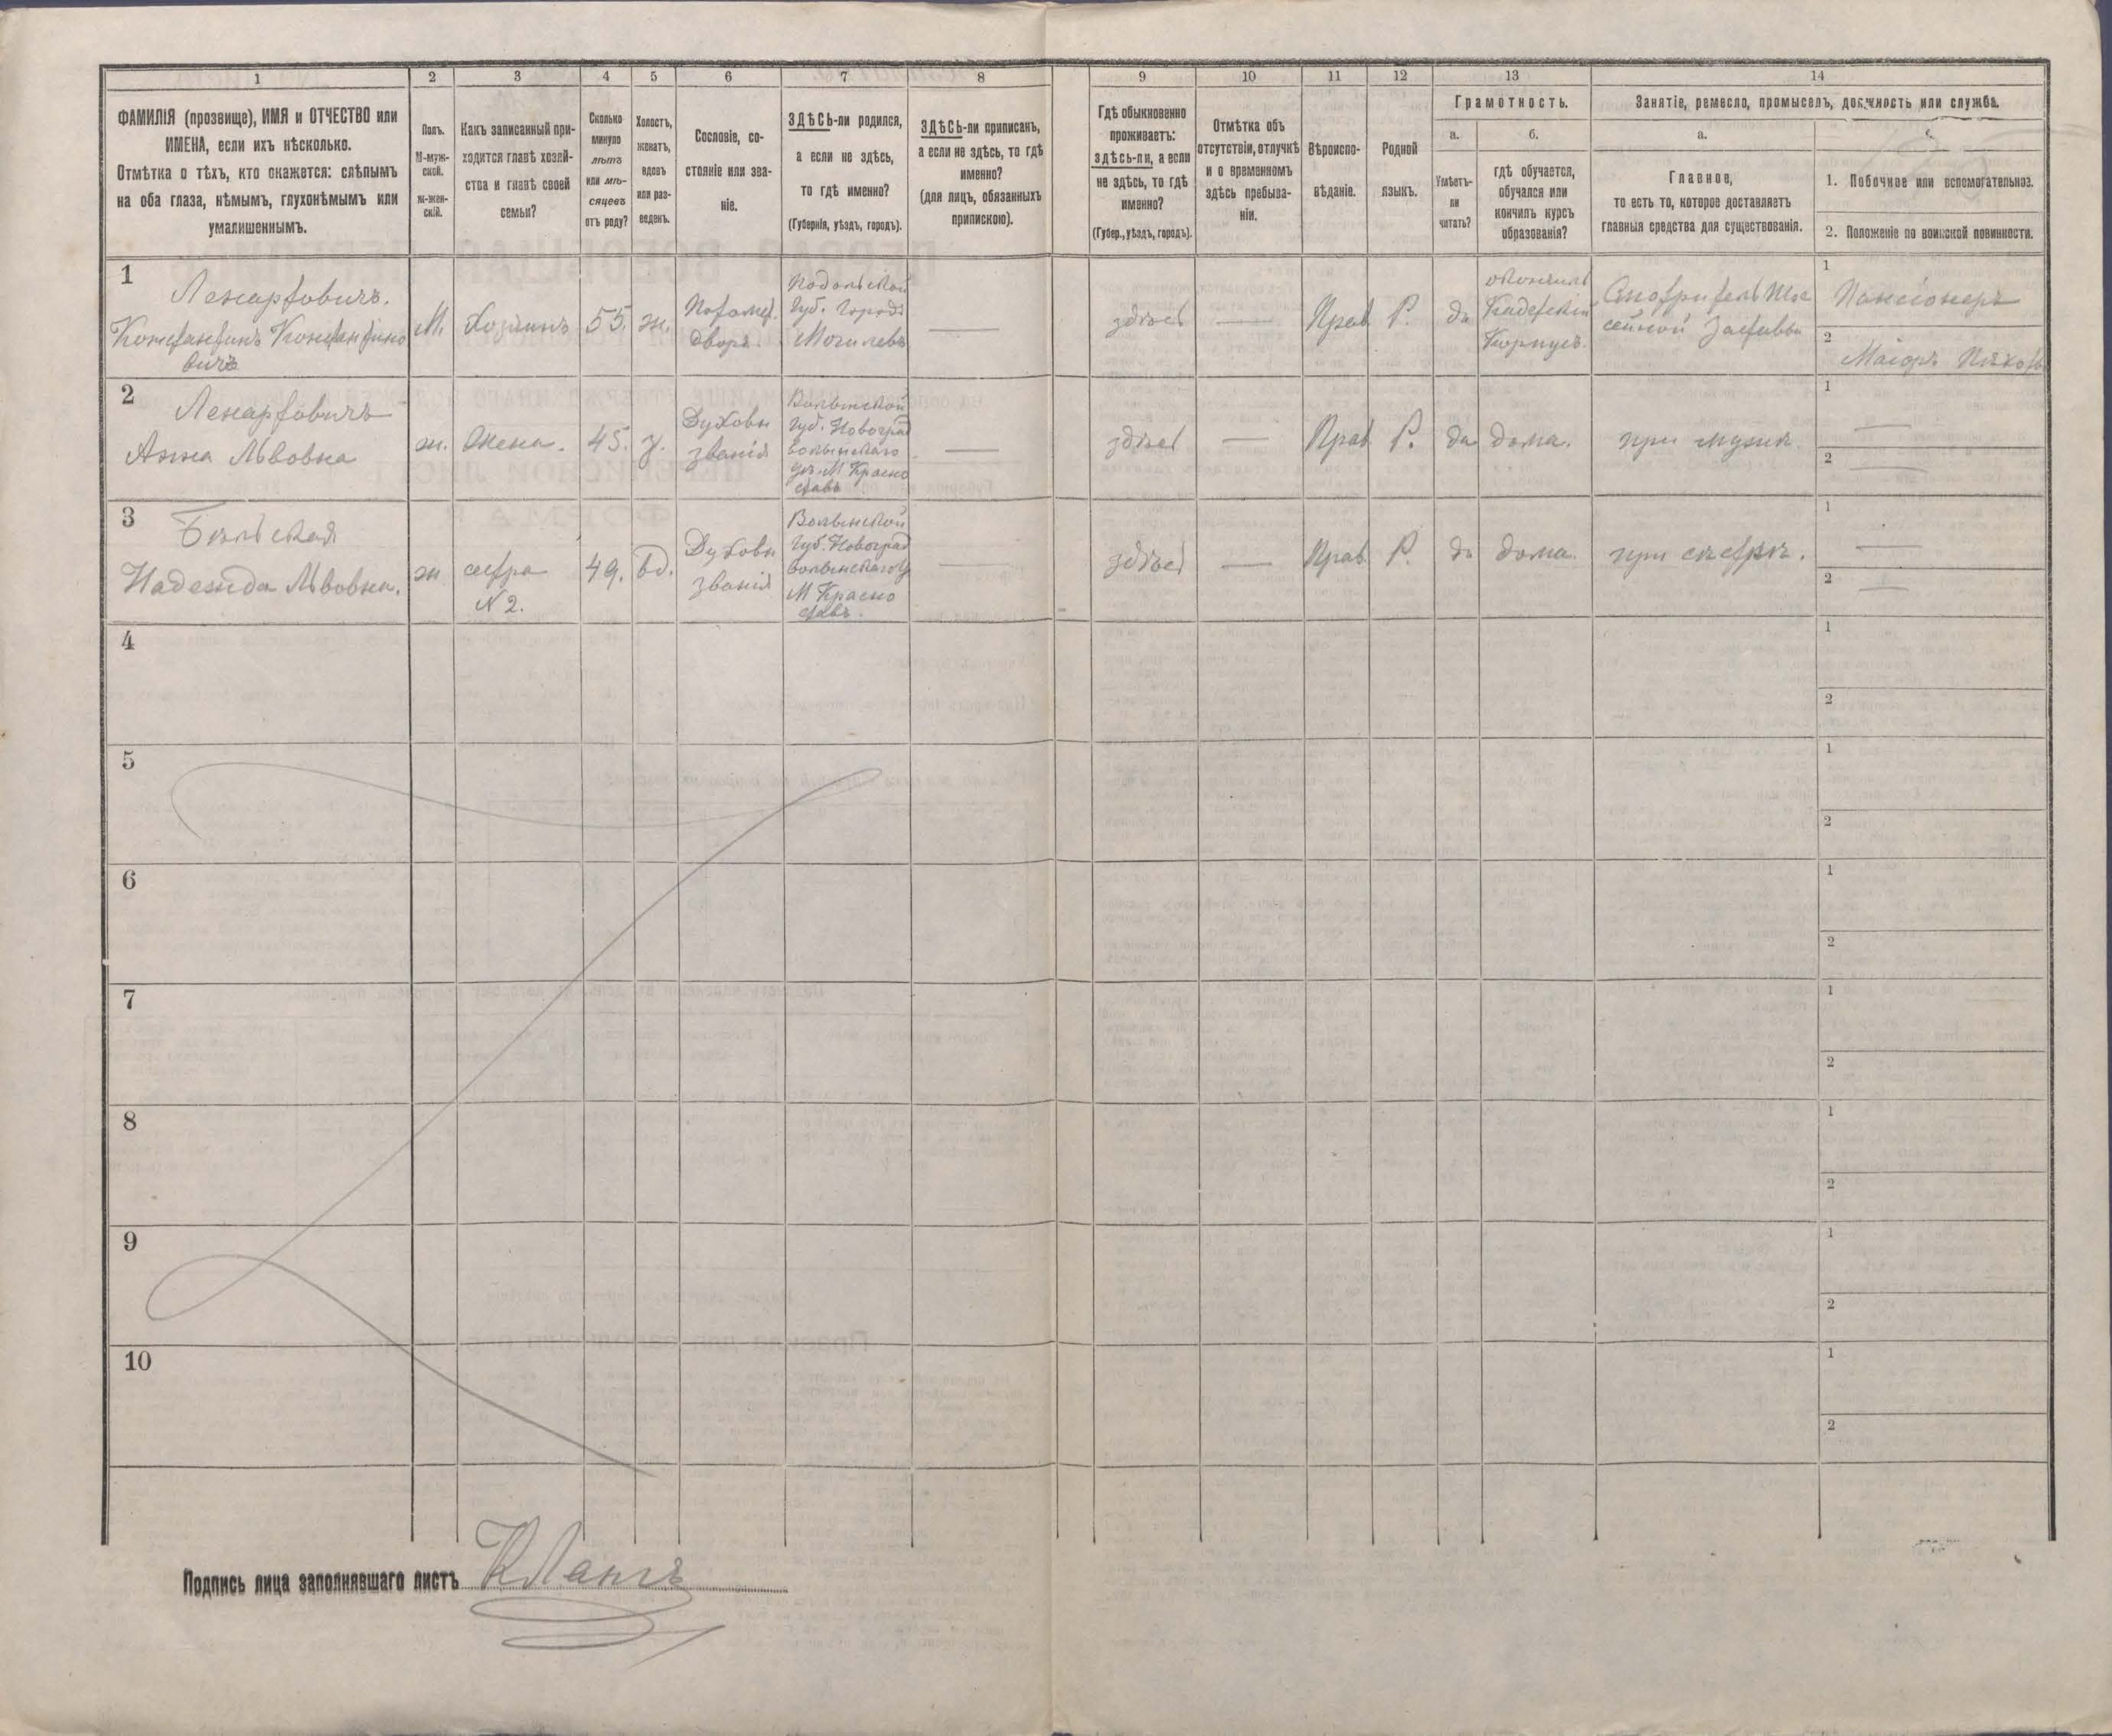 1 2 3 4 5 6 7 8 9 10 11 12 13 14
ФАМИЛІЯ (прозвище), ИМЯ и ОТЧЕСТВО или
ИМЕНА, если ихъ нѣсколько.
Отмѣтка о тѣхъ, кто окажется: слѣпымъ
на оба глаза, нѣмымъ, глухонѣмымъ или
умалишеннымъ.
Полъ.
М-муж-
ской.
ж-жен-
скій.
Какъ записанный при-
ходится главѣ хозяй-
ства и главѣ своей
семьи?
Сколько
минуло
лѣтъ
или мѣ-
сяцевъ
отъ роду?
Холостъ,
женатъ,
вдовъ
или раз-
веденъ.
Сословіе, со-
стояніе или зва-
ніе.
ЗДѢСЬ-ли родился,
а если не здѣсь,
то гдѣ именно?
(Губернія, уѣздъ, городъ).
ЗДѢСЬ-ли приписанъ,
а если не здѣсь, то гдѣ
именно?
(для лицъ, обязанныхъ
припискою).
Гдѣ обыкновенно
проживаетъ:
здѣсь-ли, а если
не здѣсь, то гдѣ
именно?
(Губер., уѣздъ, городъ).
Отмѣтка объ
отсутствіи, отлучкѣ
и о временномъ
здѣсь пребыва-
ніи.
Вѣроиспо-
вѣданіе.
Родной
языкъ.
Грамотность.
а.
Умѣетъ-
ли
читать?
б.
гдѣ обучается,
обучался или
кончилъ курсъ
образованія?
Занятіе, ремесло, промыселъ, должность или служба.
а.
Главное,
то есть то, которое доставляетъ
главныя средства для существованія.
1. Побочное или вспомогательное.
2. Положеніе по воинской повинности.
1
Ленартовичъ.
Константинъ Константино
вичъ
М.
Хозяинъ
55.
ж.
Потомст.
двор.
Подольской
Губ. Городъ
Могилевъ
—
здѣсь
—
Прав
Р.
да
окончилъ
Кадетскій
Корпусъ.
Смотритель Шос
сейной заставы
1
Пансіонеръ
2
Маіоръ Пѣхоты
2
Ленартовичъ
Анна Львовна
ж.
Жена.
45.
з.
Духовн
званія
Волынской
Губ. Новоград
волынскаго
уѣз. М Красно
ставъ
—
здѣсь
—
Прав
Р.
да
дома.
при мужѣ.
1
—
2
—
3
Бѣльская
Надежда Львовна.
ж
сестра
N 2.
49.
вд.
Духовн
званія
Волынской
Губ. Новоград
волынскаго У
М Красно
ставъ.
—
здѣсь
—
Прав
Р.
да
дома.
при сестрѣ.
1
—
2
—
4
1
2
5
1
2
6
1
2
7
1
2
8
1
2
9
1
2
10
1
2
Подпись лица заполнявшаго листъ